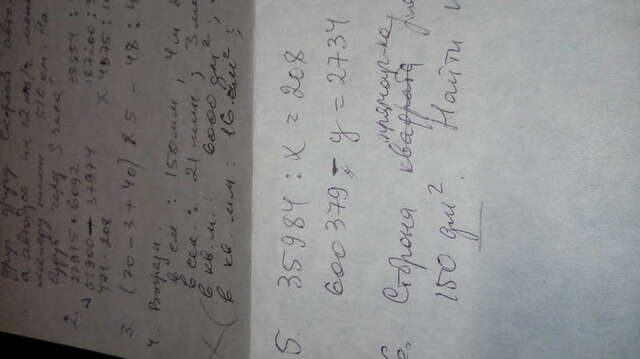 друг другу Скорость авто
а автобуса на 12 км/ч мен
510 км. На
через 3 часа
2. 27915 + 6092 38954 :
51900 - 37974 187200 :
471 · 208 × 4575 :
3. (70 - 3 + 40) × 5 - 48 : 4
4. Вырази :
в см : 150 мм, 4 м
в сек. : 21 мин.; 3 ми
в кв. м. : 6000 дм²,
в кв. мм : 16 см²;
5. 35984 : x = 208
600379 - y = 2734
прямоуг-ка
6. Сторона квадрата
150 дм². Найти